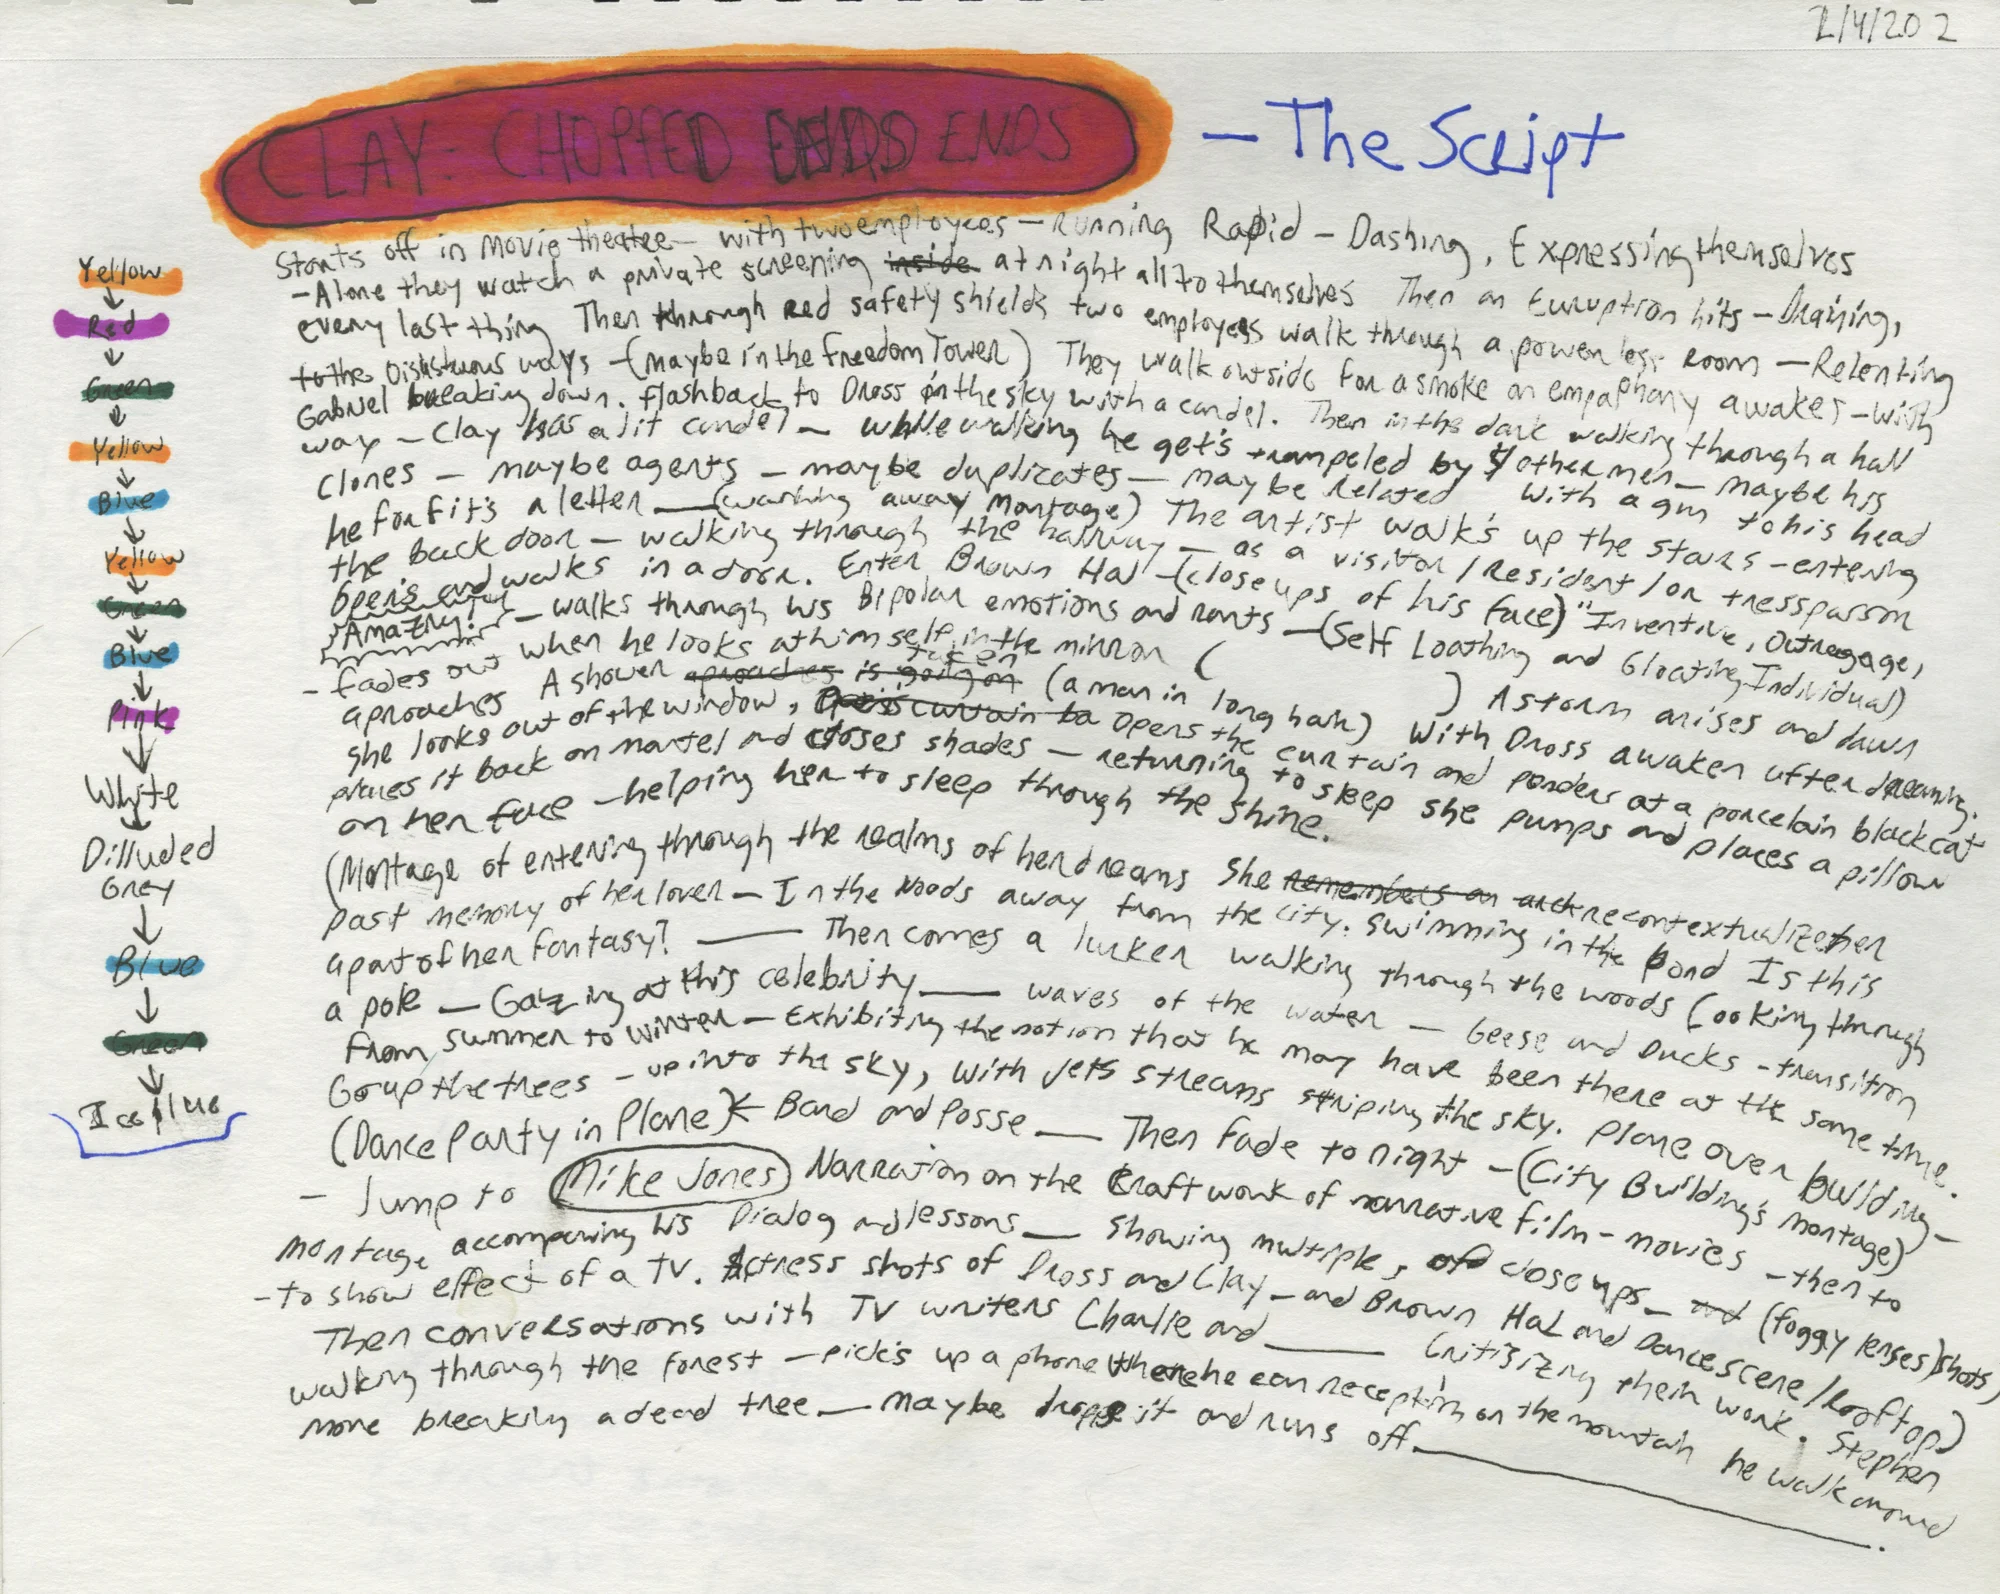 2/4/202
CLAY: CHOPPED ENDS ENDS
- The Script
Starts off in movie theatre - with two employees - Running Rapid - Dashing, Expressing themselves
- Alone they watch a private screening inside at night all to themselves Then an Euruption hits - Draining,
every last thing Then through red safety shields two employees walk through a powerless room - Relenting
to the Disastruous ways - (maybe in the Freedom Tower) They walk outside for a smoke an empaphany awakes - with
Gabriel breaking down. flashback to Dross in the sky with a candel. Then in the dark walking through a hall
way - Clay has a lit candel - while walking he get's trampeled by other men - maybe his
Clones - maybe agents - maybe duplicates - may be related with a gun to his head
he forfits a letter - (washing away montage) The artist walk's up the stairs - entering
the back door - walking through the hallway - as a visitor/resident/or tresspasson
Open's and walks in a door. Enter Brown Hal - (close ups of his face) "Inventive, Outragage,
Amazing! - walks through his Bipolar emotions and rants - (Self Loathing and Gloating Individual)
- fades out when he looks at himself in the mirror ( ) A storm arises and dawn
aproaches A shower aproaches is going on taken (a man in long hair) With Dross awaken after dreaming.
she looks out of the window, Opens the curtain and ponders at a porcelain black cat
places it back on mantel and closes shades - returning to sleep she pumps and places a pillow
on her face - helping her to sleep through the shine.
(Montage of entering through the realms of her dreams she remembers an recontextualize her
past memory of her lover - In the Woods away from the city. Swimming in the pond Is this
a part of her fantasy? - Then comes a lurker walking through the woods (ooking through
a pole - Gazing at this celebrity - waves of the water - Geese and Ducks - transition
from summer to winter - Exhibiting the notion that he may have been there at the same time.
Go up the trees - up into the sky, with jets streams striping the sky. Plane over building -
(Dance Party in Plane) ← Band and Posse - Then fade to night - (City Building's montage)
- Jump to Mike Jones Narration on the Craft work of narrative film - movies - then to
montage accompaning his Dialog and lessons - showing multiple, of close ups - and (foggy lenses) shots,
- to show effect of a TV. Actress shots of Dross and Clay - and Brown Hal and Dance scene/Rooftop)
Then conversations with TV writers Charlie and ____ Critisizing their work. Stephen
walking through the forest - pick's up a phone where he can reception on the mountain he walk around
more breaking a dead tree - maybe drops it and runs off.
Yellow
↓
Red
↓
Green
↓
Yellow
↓
Blue
↓
Yellow
↓
Green
↓
Blue
↓
Pink
↓
White
↓
Dilluded
Grey
↓
Blue
↓
Green
↓
Ice Blue